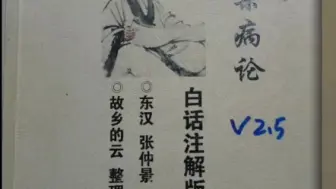 病论
V2.5
白话注解版
◎东汉 张仲景
◎故乡的云 整理